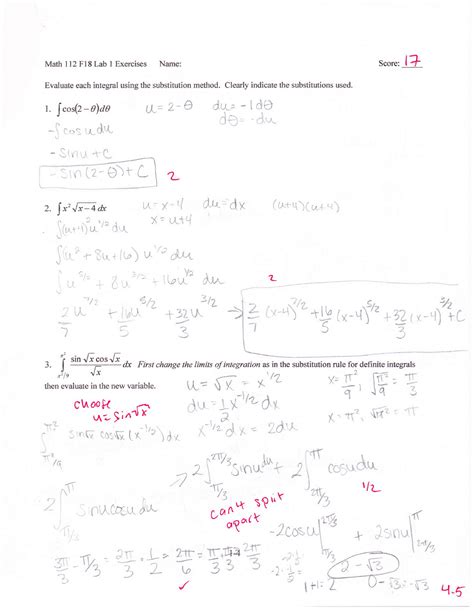 Math 112 F18 Lab 1 Exercises Name: Score: 17
Evaluate each integral using the substitution method. Clearly indicate the substitutions used.
1. ∫cos(2−θ)dθ u = 2−θ du = −1dθ
dθ = −du
−∫cosudu
−sinu + C
−sin(2−θ)+C 2
2. ∫x²√x−4 dx u = x−4 du = dx (u+4)(u+4)
x = u+4
∫(u+4)² u^1/2 du
∫(u² + 8u+16) u^1/2 du
∫u^5/2 + 8u^3/2 + 16u^1/2 du
2
2/7 u^7/2 + 16/5 u^5/2 + 32/3 u^3/2 → 2/7 (x−4)^7/2 + 16/5 (x−4)^5/2 + 32/3 (x−4)^3/2 + C
3. ∫_{π²/9}^{π²} sin √x cos √x / √x dx First change the limits of integration as in the substitution rule for definite integrals
then evaluate in the new variable.
u = √x = x^1/2
x = π²/9, √π²/9 = π/3
choose
u = sin√x
du = 1/2 x^-1/2 dx
x = π², √π² = π
∫_{π²/9}^{π²} sin√x cos√x (x^-1/2) dx
x^-1/2 dx = 2du
→ 2∫_{π/3}^{2π/3} sinudu + 2∫_{2π/3}^{π} cosudu
1/2
2∫_{π/3}^{π} sinucosudu
can't split
apart
−2cosu|_{π/3}^{2π/3} + 2sinu|_{2π/3}^{π}
3π/3 − π/3 = 2π/3 · 1/2 = 2π/6 = π/3
2 − √3
1+1=2 0−√3 = −√3
✓
4.5